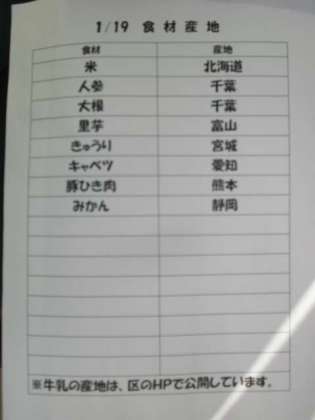 1/19 食材産地
食材 産地
米 北海道
人参 千葉
大根 千葉
里芋 富山
きゅうり 宮城
キャベツ 愛知
豚ひき肉 熊本
みかん 静岡
※牛乳の産地は、区のHPで公開しています。